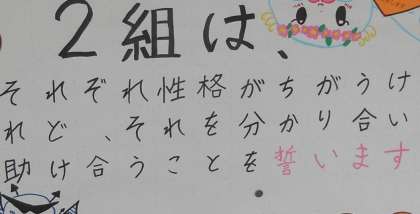 2組は、
それぞれ性格がちがうけ
れど、それを分かり合い
助け合うことを誓います